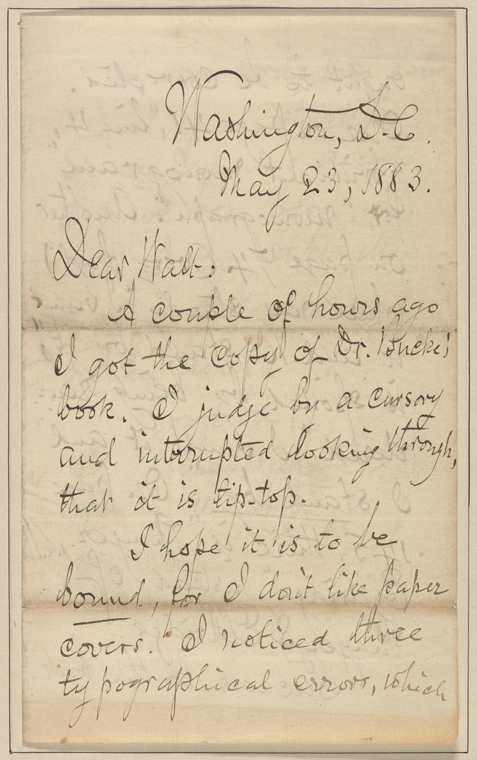 Washington, D.C.
May 23, 1883.
Dear Walt:
A couple of hours ago
I got the copy of Dr. Bucke's
book. I judge by a cursory
and interrupted looking through,
that it is tip-top.
I hope it is to be
bound, for I don't like paper
covers. I noticed three
typographical errors, which